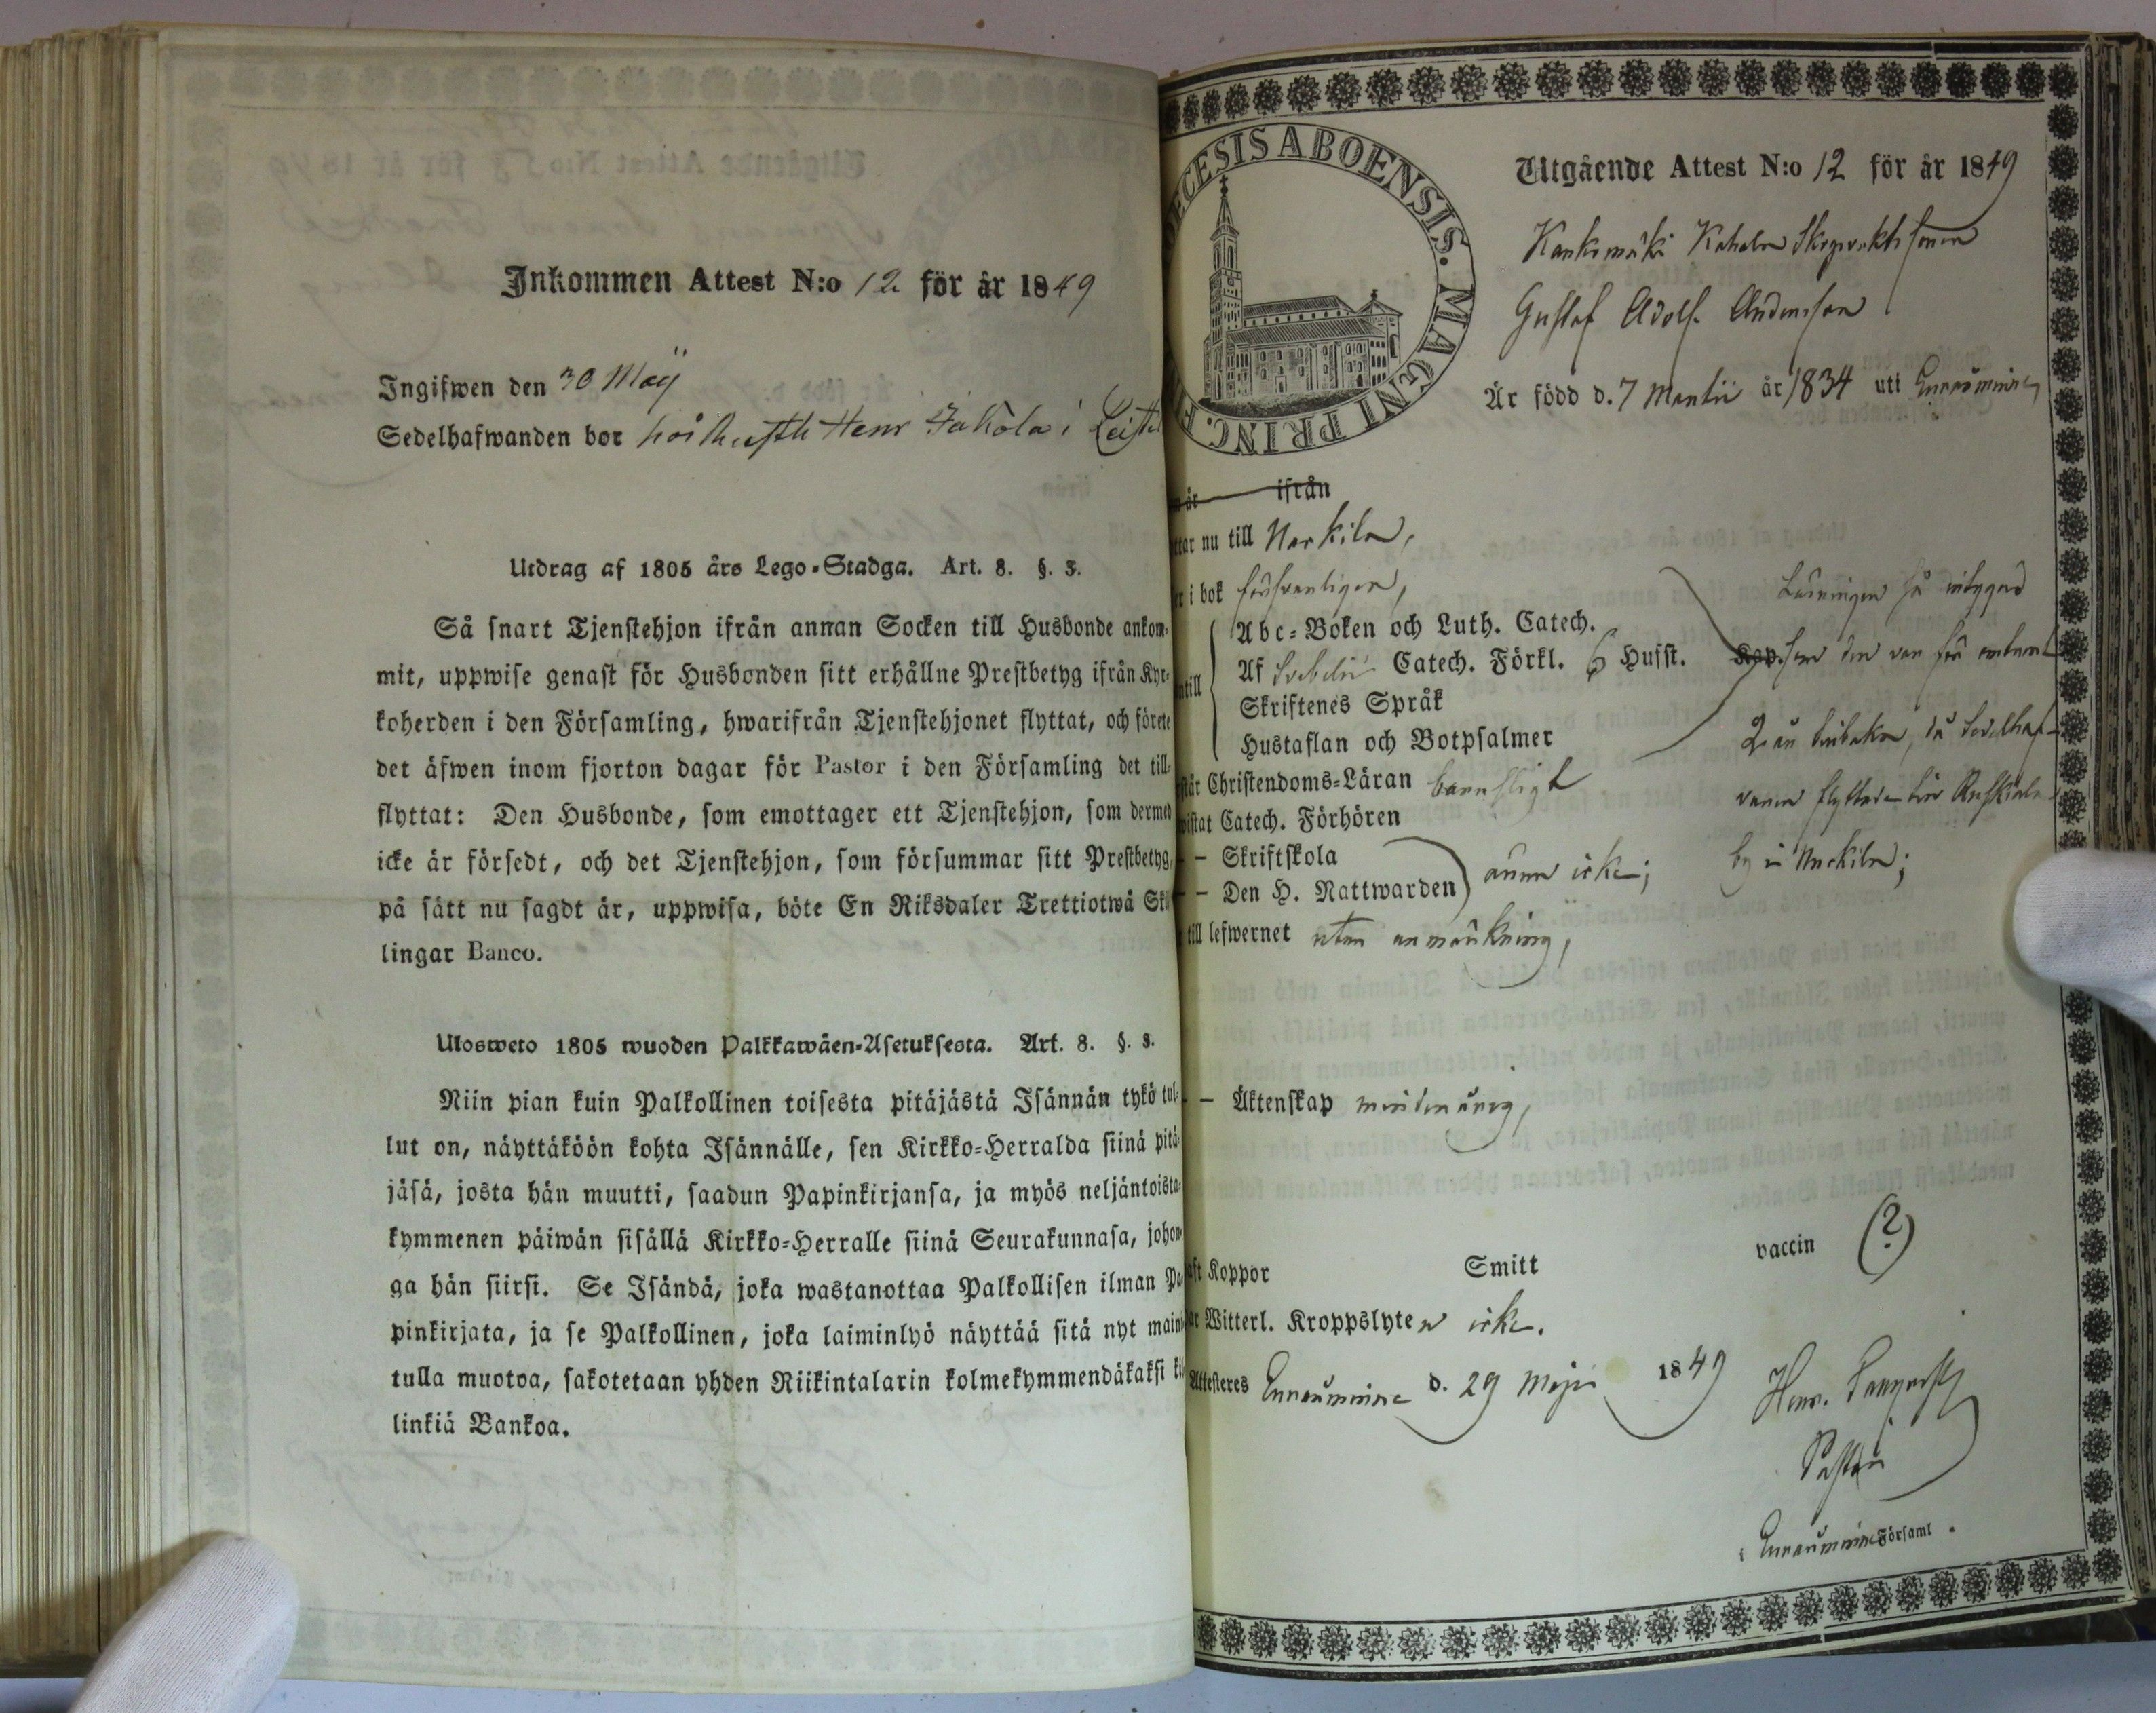 Inkommen Attest N:o 12 för år 1849
Ingifwen den 30 Maij
Sedelhafwanden bor hos Rusth Henr Jakola i
Utdrag af 1805 års Lego-Stadga. Art. 8. §. 3.
Så snart Tjenstehjon ifrån annan Socken till Husbonde ankom-
mit, uppwise genast för Husbonden sitt erhållne Prestbetyg ifrån Kyr-
koherden i den Församling, hwarifrån Tjenstehjonet flyttat, och förete
det äfwen inom fjorton dagar för Pastor i den Församling det till-
flyttat: Den Husbonde, som emottager ett Tjenstehjon, som dermed
icke är försedt, och det Tjenstehjon, som försummar sitt Prestbetyg,
på sätt nu sagdt är, uppwisa, böte En Riksdaler Trettiotwå Skil
lingar Banco.
Ulosweto 1805 wuoden Palkkawäen-Asetuksesta. Art. 8. §. 3.
Niin pian kuin Palkollinen toisesta pitäjästä Isännän tykö tul-
lut on, näyttäköön kohta Isännälle, sen Kirkko-Herralda siinä pitä-
jäsä, josta hän muutti, saadun Papinkirjansa, ja myös neljäntoista-
kymmenen päiwän sisällä Kirkko-Herralle siinä Seurakunnasa, johon-
ga hän siirsi. Se Isändä, joka wastanottaa Palkollisen ilman Pa-
pinkirjata, ja se Palkollinen, joka laiminlyö näyttää sitä nyt maini-
tulla muotoa, sakotetaan yhden Riikintalarin kolmekymmendäkaksi kil
linkiä Bankoa.
DIOECESIS ABOENSIS. MAGNI PRINC. F
Utgående Attest N:o 12 för år 1849
Kankomäki Skogvaktssonen
Gustaf Adolf Andersson
Är född d. 7 Martii år 1834 uti Euraåminne
år ifrån
ttar nu till Nakkila,
r i bok försvarligen,
Abc-Boken och Luth. Catech.
Af Svebelii Catech. Förkl. 6 Husst. Kap.
Skriftenes Språk
Hustaflan och Botpsalmer
Läsningen så intygad
som den var för
å Läseboken, då Sedelhaf-
varen flyttade till Ruskiala
by i Nakkila;
står Christendoms-Läran barnsligt
wistat Catech. Förhören
- - Skriftskola
- - Den H. Nattwarden
ännu icke;
till lefwernet utan anmärkning,
- - Äktenskap minderårig,
aft Koppor Smitt vaccin (?)
ar Witterl. Kroppslyten icke.
Attesteres Euraåminne d. 29 Maji 1849
Henr.
Pastor
i Euraåminne Församl.